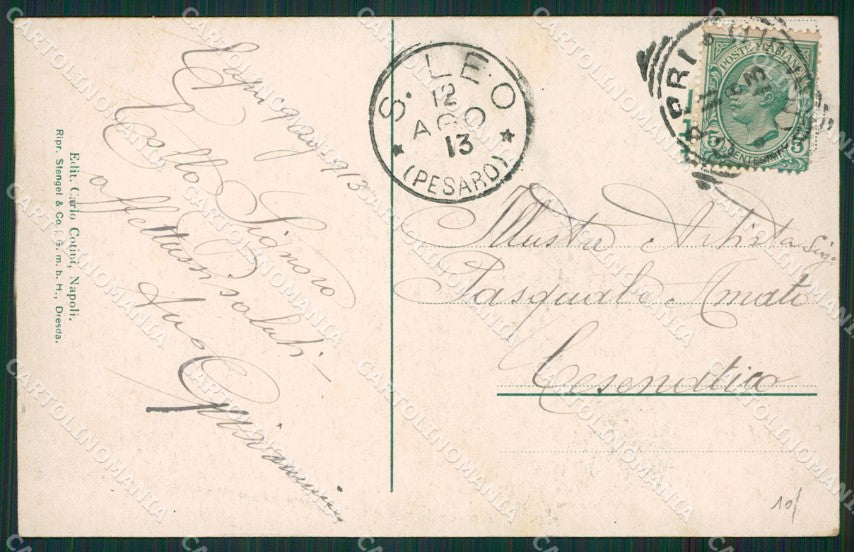 Edit. Carlo Cotini, Napoli.
Ripr. Stengel & Co., G. m. b. H., Dresda.
Capri 9 Aug 913
Signora
affettuosi saluti
S. LEO
12
AGO
13
(PESARO)
CAPRI
POSTE ITALIANE
5
CENTESIMI
5
Illustre Artista Sig.
Pasquale Amati
Cesenatico
10/
CARTOLINOMANIA